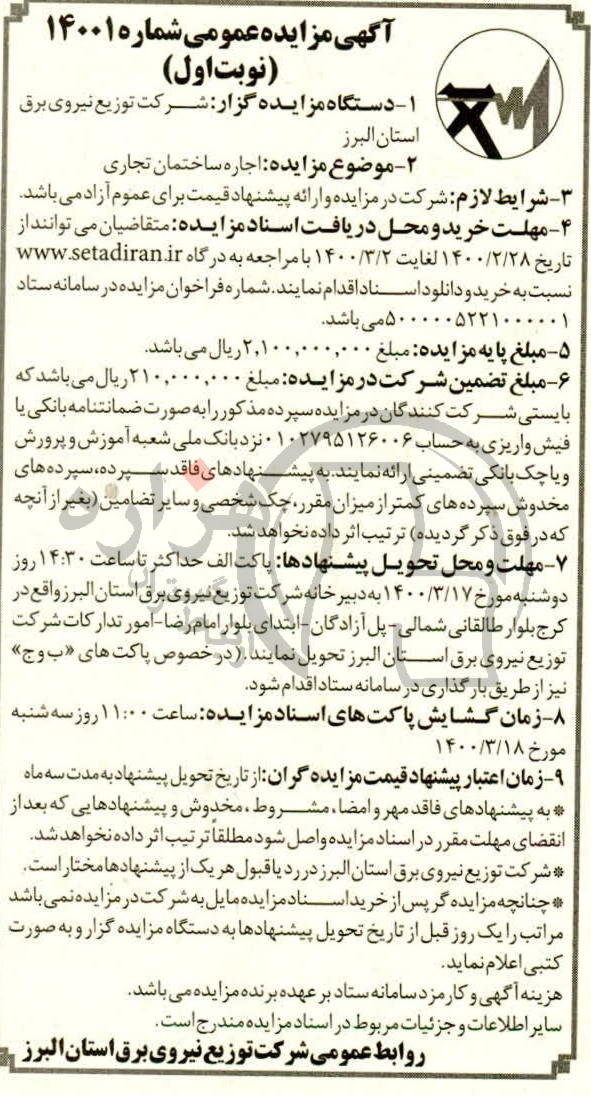 آگهی مزایده عمومی شماره ۱۴۰۰۱
(نوبت اول)
۱-دستگاه مزایده گزار: شرکت توزیع نیروی برق
استان البرز
۲-موضوع مزایده: اجاره ساختمان تجاری
۳-شرایط لازم: شرکت در مزایده و ارائه پیشنهاد قیمت برای عموم آزاد می باشد.
۴-مهلت خرید و محل دریافت اسناد مزایده: متقاضیان می توانند از
تاریخ ۱۴۰۰/۲/۲۸ لغایت ۱۴۰۰/۳/۲ با مراجعه به درگاه www.setadiran.ir
نسبت به خرید و دانلود اسناد اقدام نمایند. شماره فراخوان مزایده در سامانه ستاد
۵۰۰۰۰۰۵۲۲۱۰۰۰۰۰۱ می باشد.
۵-مبلغ پایه مزایده: مبلغ ۲,۱۰۰,۰۰۰,۰۰۰ ریال می باشد.
۶-مبلغ تضمین شرکت در مزایده: مبلغ ۲۱۰,۰۰۰,۰۰۰ ریال می باشد که
بایستی شرکت کنندگان در مزایده سپرده مذکور را به صورت ضمانتنامه بانکی یا
فیش واریزی به حساب ۰۱۰۲۷۹۵۱۲۶۰۰۶ نزد بانک ملی شعبه آموزش و پرورش
و یا چک بانکی تضمینی ارائه نمایند. به پیشنهادهای فاقد سپرده، سپرده های
مخدوش سپرده های کمتر از میزان مقرر، چک شخصی و سایر تضامین (بغیر از آنچه
که در فوق ذکر گردیده) ترتیب اثر داده نخواهد شد.
۷-مهلت و محل تحویل پیشنهادها: پاکت الف حداکثر تا ساعت ۱۴:۳۰ روز
دوشنبه مورخ ۱۴۰۰/۳/۱۷ به دبیرخانه شرکت توزیع نیروی برق استان البرز واقع در
کرج بلوار طالقانی شمالی-پل آزادگان-ابتدای بلوار امام رضا-امور تدارکات شرکت
توزیع نیروی برق استان البرز تحویل نمایند. (در خصوص پاکت های «ب و ج»
نیز از طریق بارگذاری در سامانه ستاد اقدام شود.
۸-زمان گشایش پاکت های اسناد مزایده: ساعت ۱۱:۰۰ روز سه شنبه
مورخ ۱۴۰۰/۳/۱۸
۹-زمان اعتبار پیشنهاد قیمت مزایده گران: از تاریخ تحویل پیشنهاد به مدت سه ماه
* به پیشنهادهای فاقد مهر و امضا، مشروط، مخدوش و پیشنهادهایی که بعد از
انقضای مهلت مقرر در اسناد مزایده واصل شود مطلقاً ترتیب اثر داده نخواهد شد.
* شرکت توزیع نیروی برق استان البرز در رد یا قبول هر یک از پیشنهادها مختار است.
* چنانچه مزایده گر پس از خرید اسناد مزایده مایل به شرکت در مزایده نمی باشد
مراتب را یک روز قبل از تاریخ تحویل پیشنهادها به دستگاه مزایده گزار و به صورت
کتبی اعلام نماید.
هزینه آگهی و کارمزد سامانه ستاد بر عهده برنده مزایده می باشد.
سایر اطلاعات و جزئیات مربوط در اسناد مزایده مندرج است.
روابط عمومی شرکت توزیع نیروی برق استان البرز
هزاره